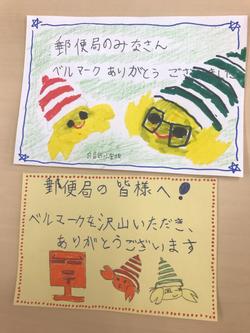 郵便局のみなさん
ベルマーク ありがとう ございました
郵便局の皆様へ!
ベルマークを沢山いただき、
ありがとうございます